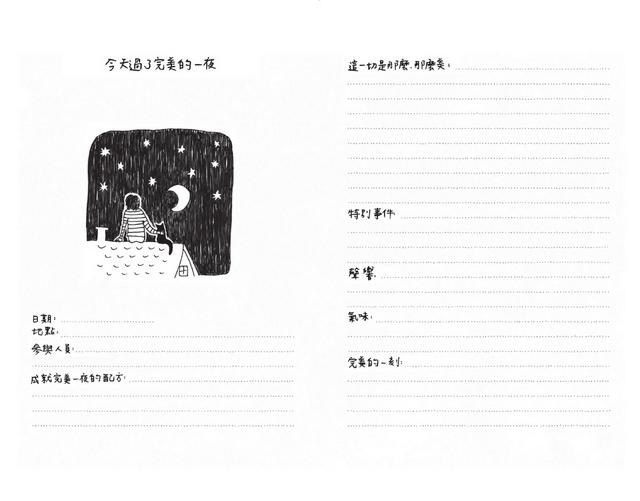 今天過了完美的一夜
日期:
地點:
參與人員:
成就完美一夜的配方:
這一切是那麼、那麼美:
特別事件:
聲響:
氣味:
完美的一刻: